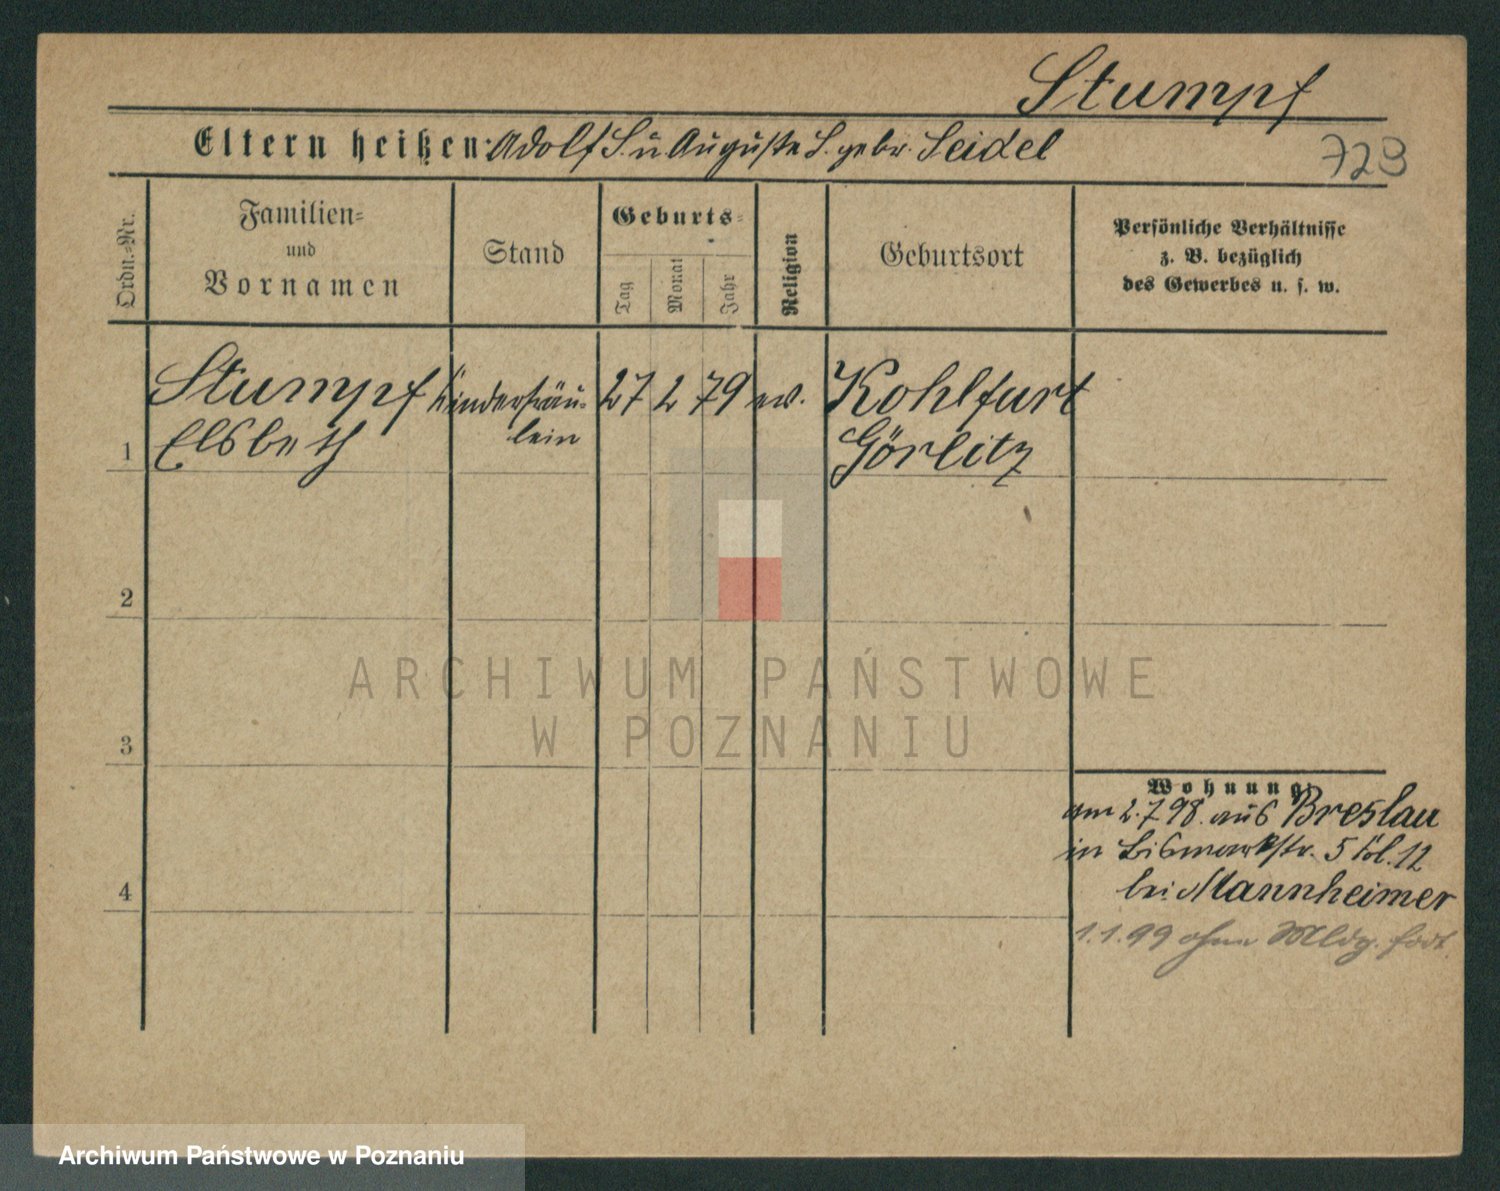 Stumpf
Eltern heißen: Adolf S. u Auguste S. gebr. Seidel
723
Ordn.-Nr.
Familien-
und
Vornamen
Stand
Geburts-
Tag
Monat
Jahr
Religion
Geburtsort
Persönliche Verhältnisse
z. B. bezüglich
des Gewerbes u. s. w.
Stumpf Kinderfräu- 27 2 79 ev. Kohlfurt
1 Elsbeth lein Görlitz
2
ARCHIWUM PAŃSTWOWE
W POZNANIU
3
Wohnung:
am 2.7.98. aus Breslau
in Bismarkstr. 5 12
4
bei Mannheimer
1.1.99 ohne Mldg. fort.
Archiwum Państwowe w Poznaniu